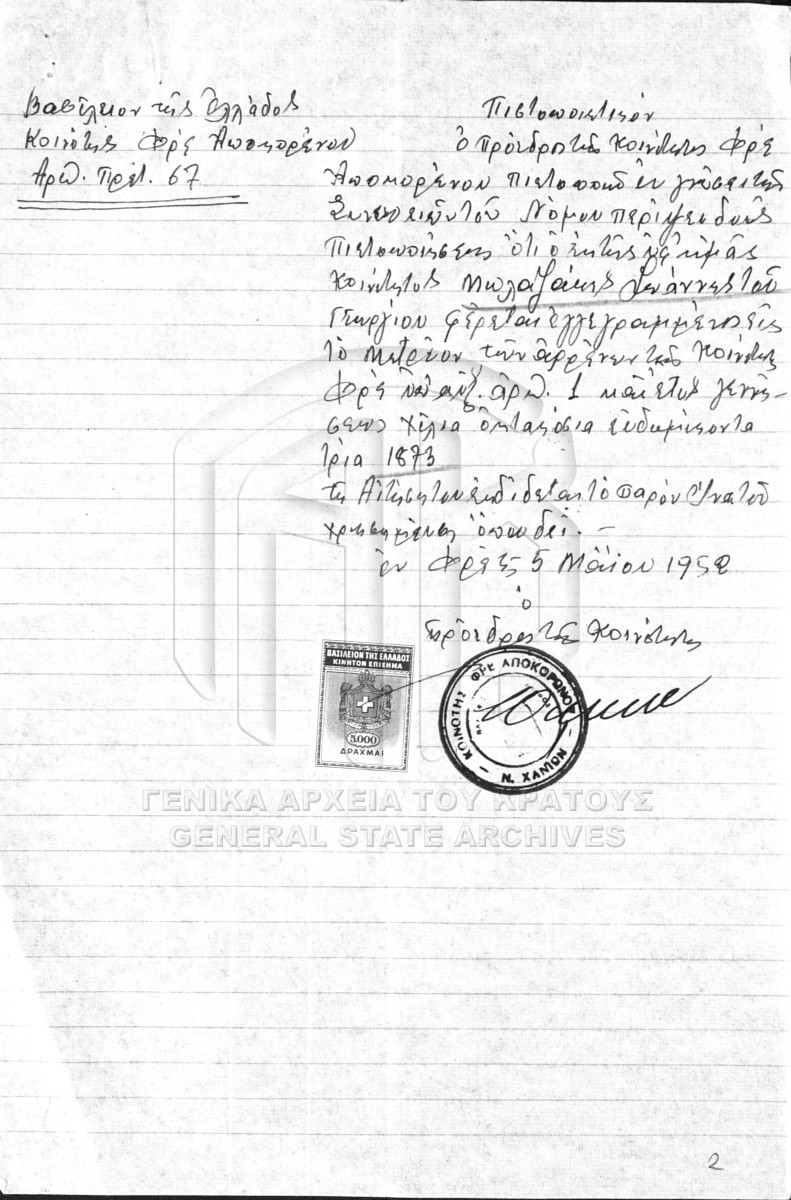 Βασίλειον τῆς Ἑλλάδος
Κοινότης Φρέ Ἀποκορώνου
Αριθ. Πρωτ. 67
Πιστοποιητικόν
ὁ Πρόεδρος τῆς Κοινότητος Φρέ
Ἀποκορώνου πιστοποιῶ ἐν γνώσει τῆς
Συνεπειῶν τοῦ Νόμου περί ψευδοῦς
Πιστοποιήσεως ὅτι ὁ ἐκ τῆς καθ' ἡμᾶς
Κοινότητος Μπολαζάκης Ἰωάννης τοῦ
Γεωργίου φέρεται ἐγγεγραμμένος εἰς
τό Μητρῶον τῶν ἀρρένων τῆς Κοινότητος
Φρέ ὑπ' αὔξ. ἀριθ. 1 καί ἔτος γεννή-
σεως χίλια ὀκτακόσια ευδωμήκοντα
τρία 1873
τῇ Αἰτήσει του ἐκδίδεται τό παρόν ἵνα τοῦ
χρησιμεύσῃ ὅπου δεῖ. —
ἐν Φρέ τῇ 5 Μαΐου 1952
ὁ
Πρόεδρος τῆς Κοινότητος
ΒΑΣΙΛΕΙΟΝ ΤΗΣ ΕΛΛΑΔΟΣ
ΚΙΝΗΤΟΝ ΕΠΙΣΗΜΑ
5.000
ΔΡΑΧΜΑΙ
ΚΟΙΝΟΤΗΣ ΦΡΕ ΑΠΟΚΟΡΩΝΟΥ
Ν. ΧΑΝΙΩΝ
ΓΕΝΙΚΑ ΑΡΧΕΙΑ ΤΟΥ ΚΡΑΤΟΥΣ
GENERAL STATE ARCHIVES
2